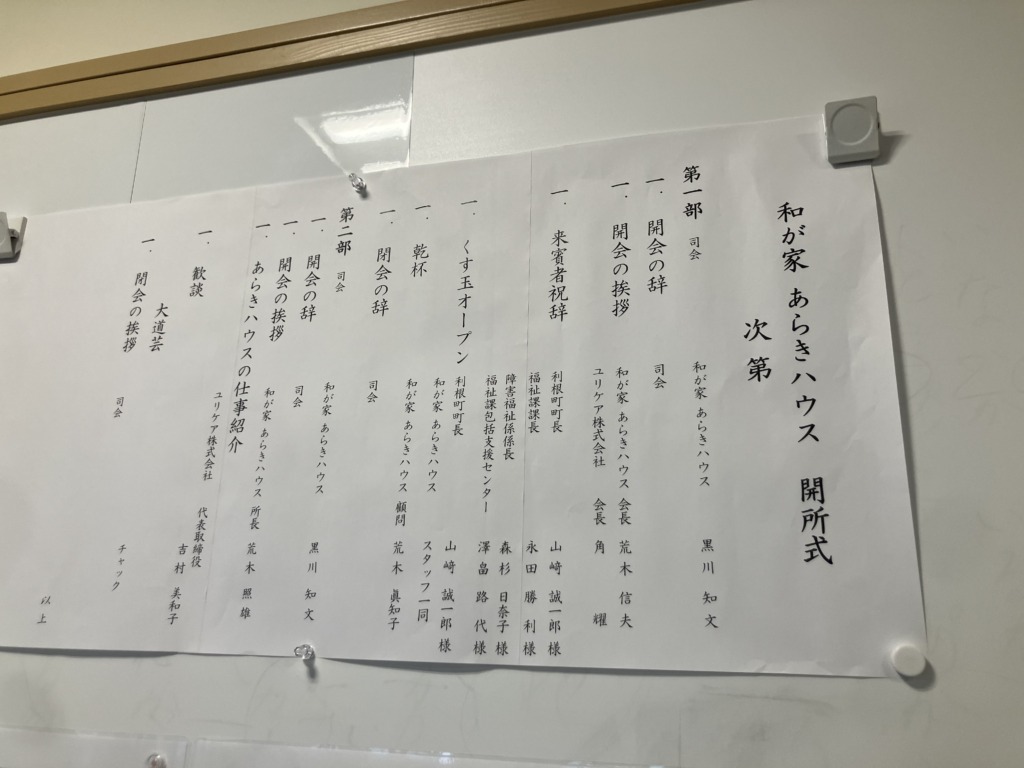 和が家 あらきハウス 開所式
次第
第一部 司会 和が家 あらきハウス 黒川 知文
一. 開会の辞 司会
一. 開会の挨拶 和が家 あらきハウス 会長 荒木 信夫
ユリケア株式会社 会長 角 耀
一. 来賓者祝辞 利根町町長 山﨑 誠一郎 様
福祉課課長 永田 勝利 様
障害福祉係係長 森杉 日奈子 様
福祉課包括支援センター 澤畠 路代 様
一. くす玉オープン 利根町町長 山﨑 誠一郎 様
和が家 あらきハウス スタッフ一同
一. 乾杯 和が家 あらきハウス 顧問 荒木 眞知子
一. 閉会の辞 司会
第二部 司会 和が家 あらきハウス 黒川 知文
一. 開会の辞 司会
一. 開会の挨拶 和が家 あらきハウス 所長 荒木 照雄
一. あらきハウスの仕事紹介
ユリケア株式会社 代表取締役 吉村 美和子
一. 歓談
大道芸 チャック
一. 閉会の挨拶 司会
以上